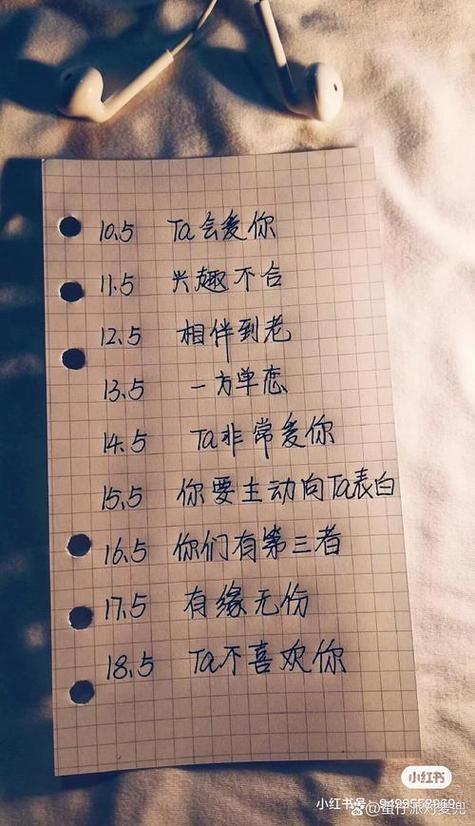 10.5 Ta会爱你
11.5 兴趣不合
12.5 相伴到老
13.5 一方单恋
14.5 Ta非常爱你
15.5 你要主动向Ta表白
16.5 你们有第三者
17.5 有缘无伤
18.5 Ta不喜欢你
小红书
小红书号:
@蛋仔派对麦兜